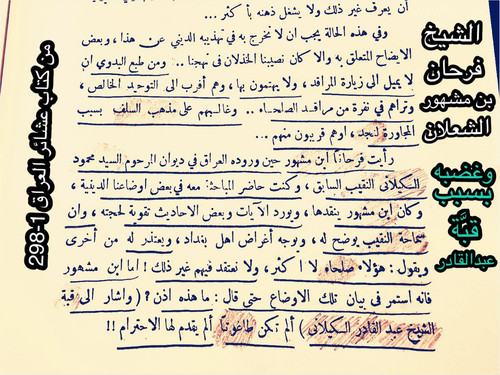 الشيخ
فرحان
بن مشهور
الشعلان
وغضبه
بسبب
قبَّة
عبدالقادر
من كتاب عشائر العراق 1-298
أن يعرف غير ذلك ولا يشغل ذهنه بأكثر ...
وفي هذه الحالة يجب ان لا نخرج به في تهذيبه الديني عن هذا، وبعض
الايضاح المتعلق به والا كان نصيبنا الخذلان في نهجنا .. ومن طبع البدوي ان
لا يميل الى زيارة المراقد، ولا يهتمون بها، وهم أقرب الى التوحيد الخالص،
وتراهم في نفرة من مراقد الصلحاء .. وغالبهم على مذهب السلف بسبب
المجاورة لنجد، اوهم قريبون منهم ..
رأيت فرحاناً ابن مشهور حين وروده العراق في ديوان المرحوم السيد محمود
الكيلاني النقيب السابق، وكنت حاضر المباحثة معه في بعض اوضاعنا الدينية،
وكان ابن مشهور ينقدها، ويورد الآيات وبعض الاحاديث تقوية لحجته، وان
سماحة النقيب يوضح له، ويوجه أغراض اهل بغداد، ويعتذر له من أخرى
ويقول : هؤلاء صلحاء لا اكثر، ولا نعتقد فيهم غير ذلك ! اما ابن مشهور
فانه استمر في بيان تلك الاوضاع حتى قال : ما هذه اذن ? ( واشار الى قبة
الشيخ عبد القادر الكيلاني ) ألم تكن طاغوتاً ألم يقدم لها الاحترام !!